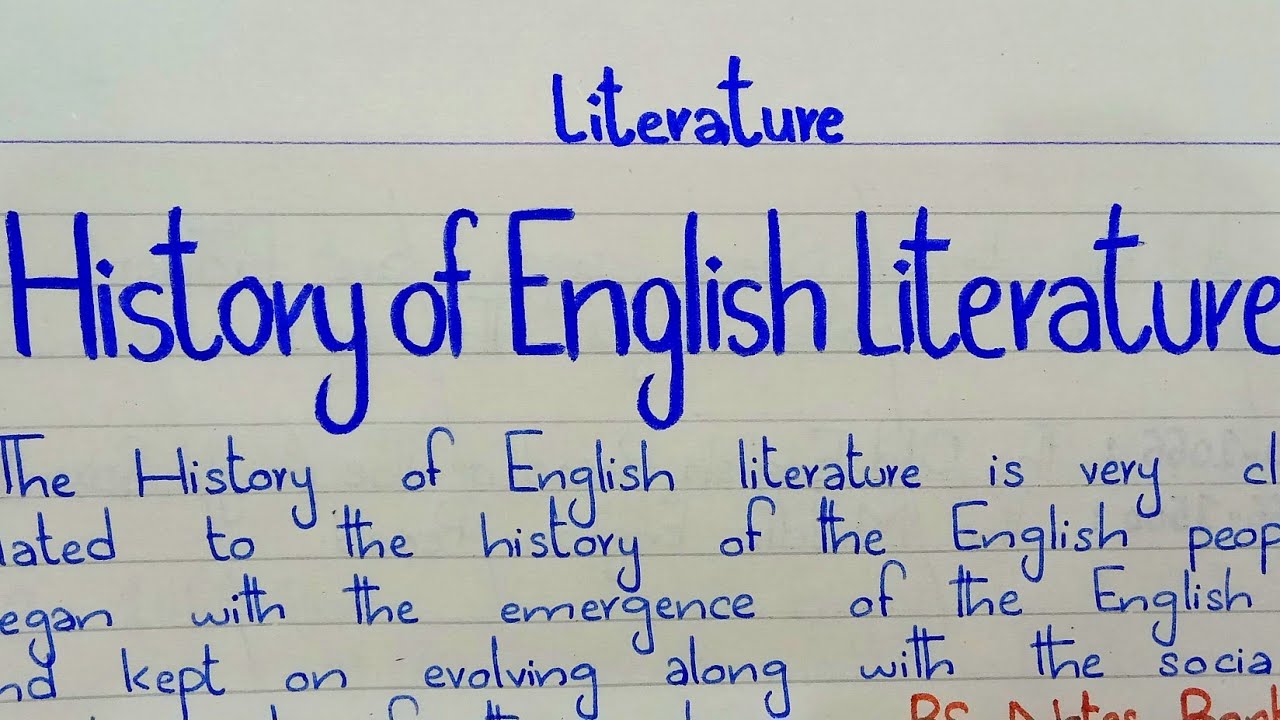 Literature
History of English Literature
The History of English literature is very cl
lated to the history of the English peop
egan with the emergence of the English
nd kept on evolving along with the socia
BS Notes